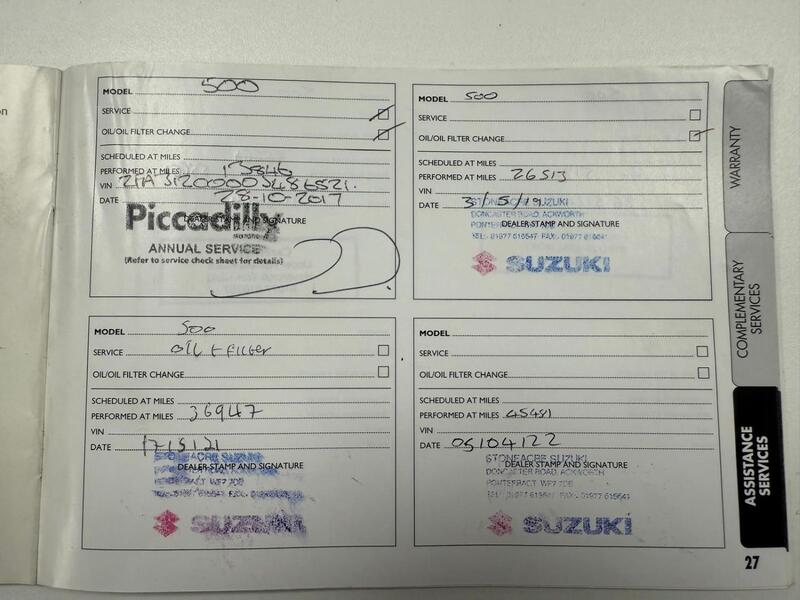 on
MODEL 500
SERVICE
OIL/OIL FILTER CHANGE
SCHEDULED AT MILES
PERFORMED AT MILES 13846
VIN
DATE 28-10-2017
DEALER STAMP AND SIGNATURE
Piccadilly
ANNUAL SERVICE
(Refer to service check sheet for details)
MODEL 500
SERVICE
OIL/OIL FILTER CHANGE
SCHEDULED AT MILES
PERFORMED AT MILES 26513
VIN
DATE 3/5/19
STONEACRE SUZUKI
DONCASTER ROAD, ACKWORTH
DEALER STAMP AND SIGNATURE
SUZUKI
MODEL 500
SERVICE OIL + FILTER
OIL/OIL FILTER CHANGE
SCHEDULED AT MILES
PERFORMED AT MILES 36947
VIN
DATE
STONEACRE SUZUKI
DEALER STAMP AND SIGNATURE
PONTEFRACT WF7 7DB
SUZUKI
MODEL
SERVICE
OIL/OIL FILTER CHANGE
SCHEDULED AT MILES
PERFORMED AT MILES 45481
VIN
DATE 05/04/22
STONEACRE SUZUKI
DEALER STAMP AND SIGNATURE
DONCASTER ROAD, ACKWORTH
PONTEFRACT WF7 7DB
SUZUKI
WARRANTY
COMPLEMENTARY
SERVICES
ASSISTANCE
SERVICES
27